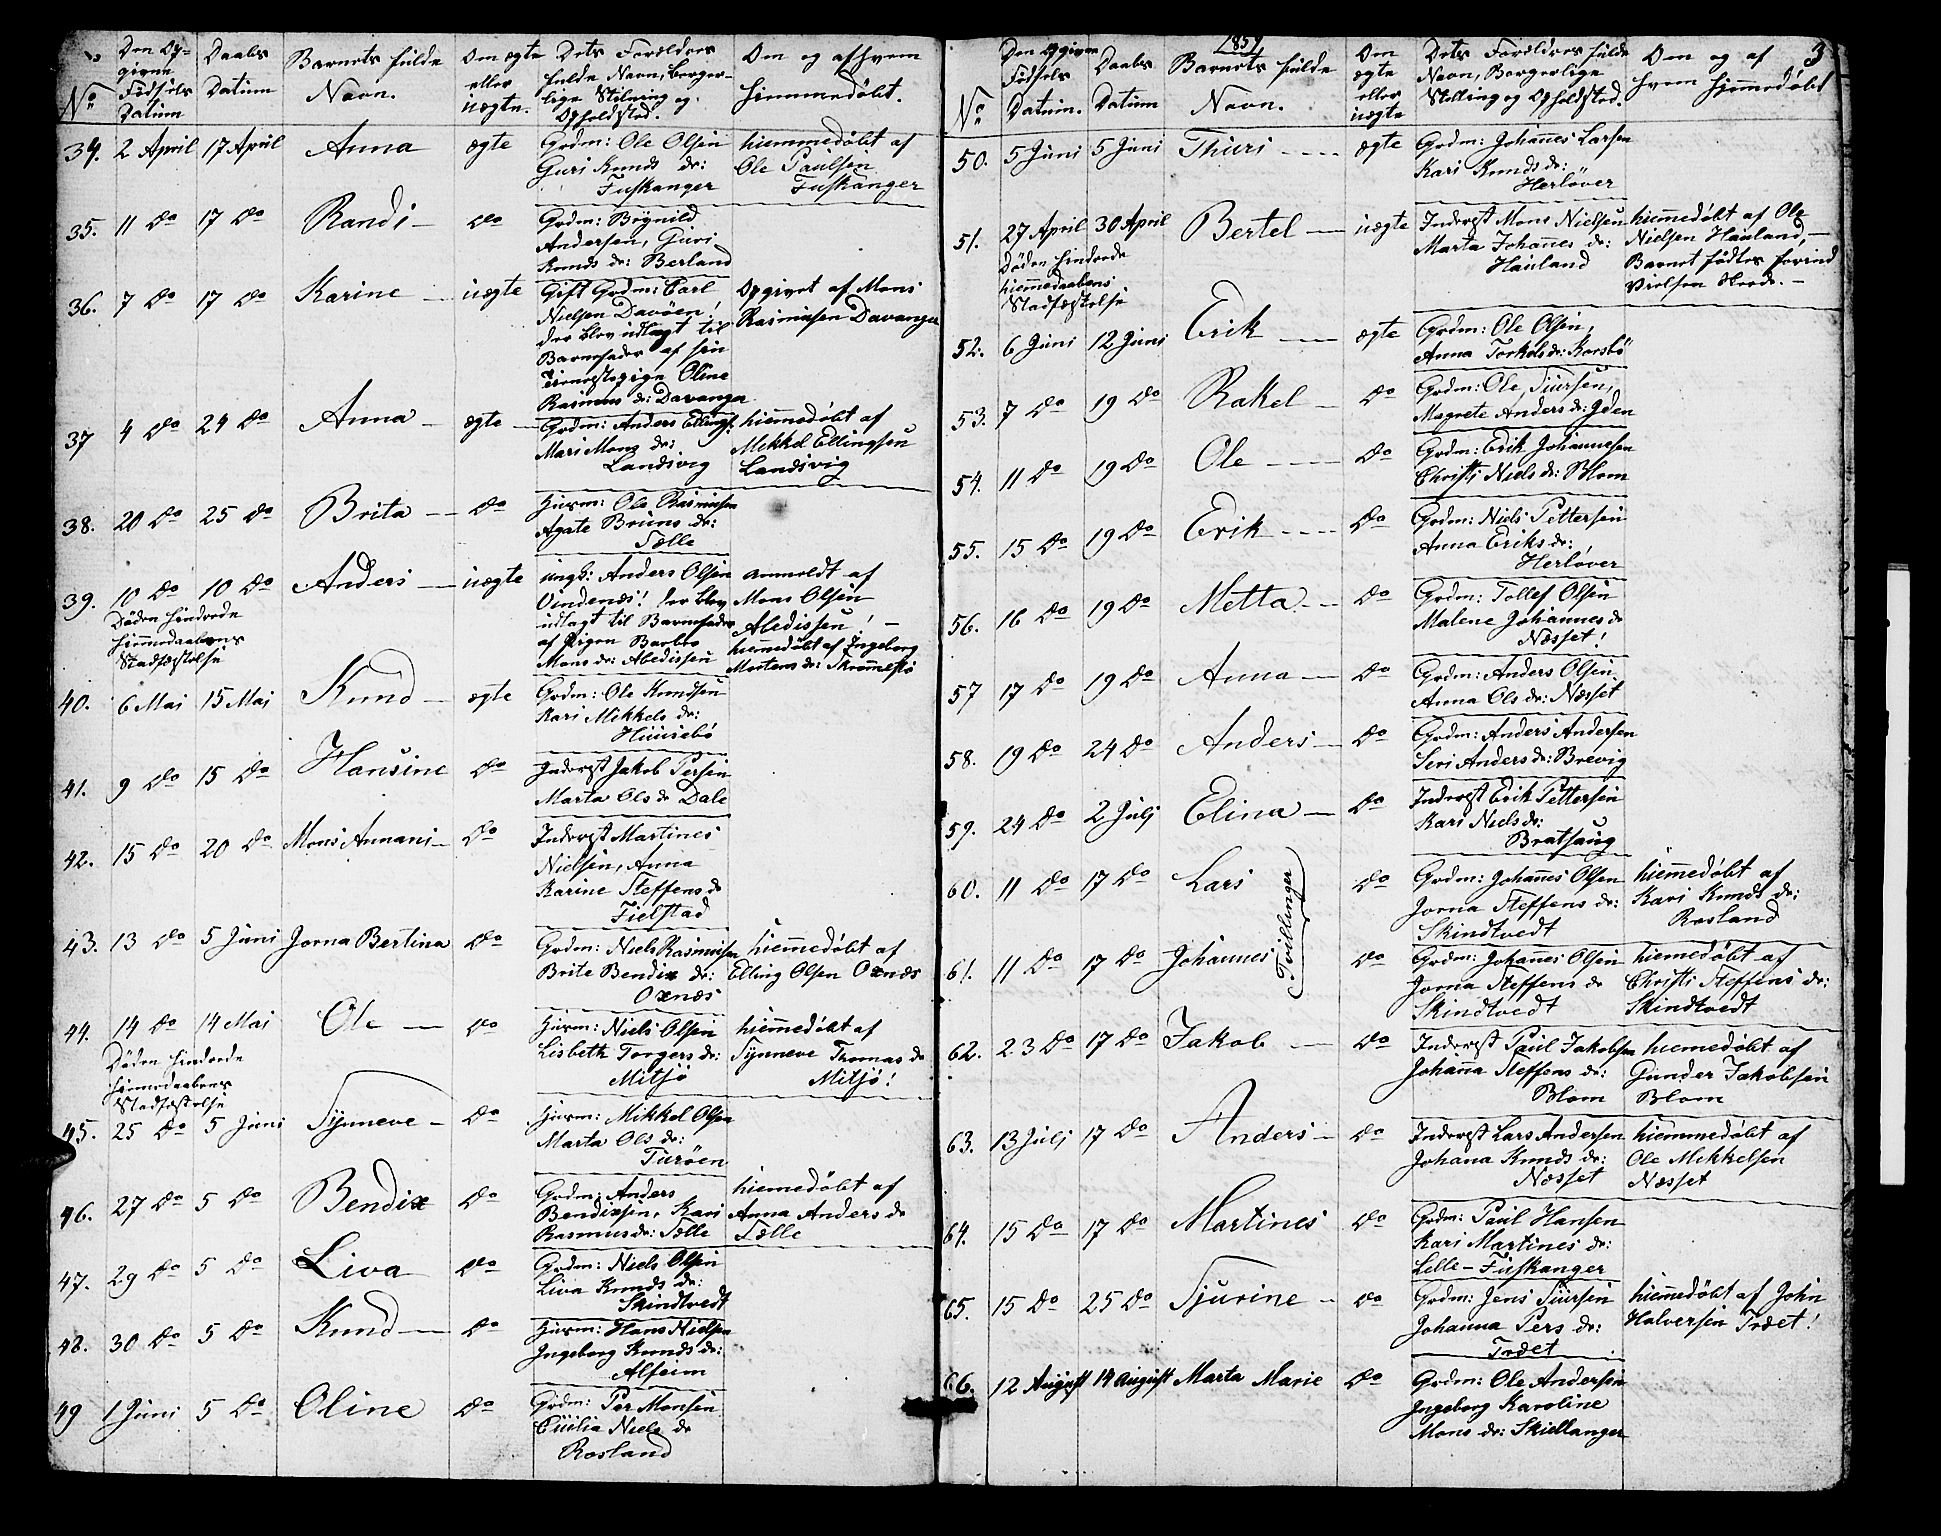 No
Den Op-
givne
Fødsels
Datum
Daabs
Datum
Barnets fulde
Navn.
Om ægte
eller
uægte.
Dets Forældres
fulde Navn, borger-
lige Stilning og
Opholdsted.
Om og af hvem
hjemmedøbt.
34. 2 April 17 April Anna ægte
Grdm: Ole Olsen
Guri Knuds dr:
Fuskanger
hiemmedøbt af
Ole Paulsen
Fuskanger
35. 11 do 17 do Randi - do
Grdm: Brynild
Andersen, Guri
Knuds dr: Berland
36. 7 do 17 do Karine - uægte
Gift Grdm: Carl
Nielsen Davøen!
der blev udlagt til
Barnefader af sin
Tjenestepige Oline
Rasmus dr: Davanger
Opgivet af Mons
Rasmusen Davanger
37 4 do 24 do Anna - ægte
Grdm: Anders Ellings:
Mari Mons dr:
Landsvig
hiemedøbt af
Mikkel Ellingsen
Landsvig
38. 20 do 25 do Brita - do
Huusm: Ole Rasmusen
Agate Bruns dr:
Tælle
39. 10 do 10 do Anders - uægte
Døden hindrede
hjemmedaabens
Stadfæstelse
ungk: Anders Olsen
Vindenæs! der blev
udlagt til Barnefader
af Pigen Barbro
Mons dr: Abedissen
anmeldt af
Mons Olsen
Abedissen! -
hiemedøbt af Ingeborg
Mortens dr: Skrommesø
40. 6 Mai 15 Mai Knud - ægte
Grdm: Ole Knudsen
Kari Mikkels dr:
Huusebø
41. 9 do 15 do Hansine do
Inderst Jakob Persen
Marta Ols dr Dale
42. 15 do 20 do Mons Annani - do
Inderst Martines
Nielsen, Anna
Karine Steffens dr
Fielstad
43. 13 do 5 Juni Jorna Bertina do
Grdm: Niels Rasmusen
Brite Bendix dr:
Oxnæs
hiemmedøbt af
Elling Olsen Oxnæs
44. 14 do 14 Mai Ole - do
Døden hindrede
hjemmedaabens
Stadfæstelse
Huusm: Niels Olsen
Lisbeth Torgers dr:
Mitsjø
hiemmedøbt af
Synneve Thomas dr
Mitsjø!
45. 25 do 5 Juni Synneve - do
Huusm: Mikkel Olsen
Marta Ols dr:
Turøen
46. 27 do 5 do Bendix do
Grdm: Anders
Bendixsen, Kari
Rasmus dr: Tælle
hiemedøbt af
Anna Anders dr
Tælle
47. 29 do 5 do Liva do
Grdm: Niels Olsen
Liva Knuds dr:
Skindtvedt
48. 30 do 5 do Knud - do
Huusm: Hans Nielsen
Ingeborg Knuds dr:
Alfeim
49 1 Juni 5 do Oline do
Grdm: Per Monsen
Cicilia Niels dr
Rosland
1859
3
No
Den opgivne
Fødsels
Datum.
Daabs
Datum
Barnets fulde
Navn.
Om
ægte
eller
uægte
Dets Forældres fulde
Navn, Borgerlige
Stilling og Opholdsted.
Om og af
hvem hjemedøbt
50. 5 Juni 5 Juni Thuri - ægte
Grdm: Johañes Larsen
Kari Knuds dr:
Herløver
51. 27 April 30 April Bertel - uægte
Døden hindrede
hiemmedaabens
Stadfæstelse
Inderst Mons Nielsen
Marta Johañes dr:
Hauland
hiemedøbt af Ole
Nielsen Hauland, -
Barnet fødtes forind
Vielsen skede. -
52. 6 Juni 12 Juni Erik - ægte
Grdm: Ole Olsen,
Anna Torkels dr: Korsbø
53. 7 do 19 do Rakel - do
Grdm: Ole Siursen,
Magrete Anders dr: Yden
54. 11 do 19 do Ole - do
Grdm: Erik Johannesen
Christi Niels dr: Blom
55. 15 do 19 do Erik - do
Grdm: Niels Pettersen
Anna Eriks dr:
Herløver
56. 16 do 19 do Metta - do
Grdm: Tollef Olsen
Malene Johannes dr
Næsset!
57 17 do 19 do Anna - do
Grdm: Anders Olsen
Anna Ols dr: Næsset
58. 19 do 24 do Anders - do
Grdm: Anders Andersen
Siri Anders dr: Brevig
59. 24 do 2 Julj Elina - do
Inderst Erik Pettersen
Kari Niels dr:
Bratsaug
60. 11 do 17 do Lars do
Tvillinger
Grdm: Johañes Olsen
Jorna Steffens dr:
Skindtvedt
hiemedøbt af
Kari Knuds dr:
Rosland
61. 11 do 17 do Johannes do
Grdm: Johañes Olsen
Jorna Steffens dr
Skindtvedt
hiemedøbt af
Christi Steffens dr:
Skindtvedt
62. 23 do 17 do Jakob - do
Inderst Paul Jakobsen
Johaña Steffens dr:
Blom
hiemedøbt af
Gunder Jakobsen
Blom
63. 13 Julj 17 do Anders - do
Inderst Lars Andersen
Johana Knuds dr:
Næsset
hiemmedøbt af
Ole Mikkelsen
Næsset
64. 15 do 17 do Martines do
Grdm: Paul Hansen
Kari Martines dr:
Lille-Fuskanger
65. 15 do 25 do Sjurine - do
Grdm: Jens Siursen
Johanna Pers dr:
Trædet
hiemedøbt af John
Halversen Trædet!
66. 12 August 14 August Marta Marie do
Grdm: Ole Andersen
Ingeborg Karoline
Mons dr: Skiellanger